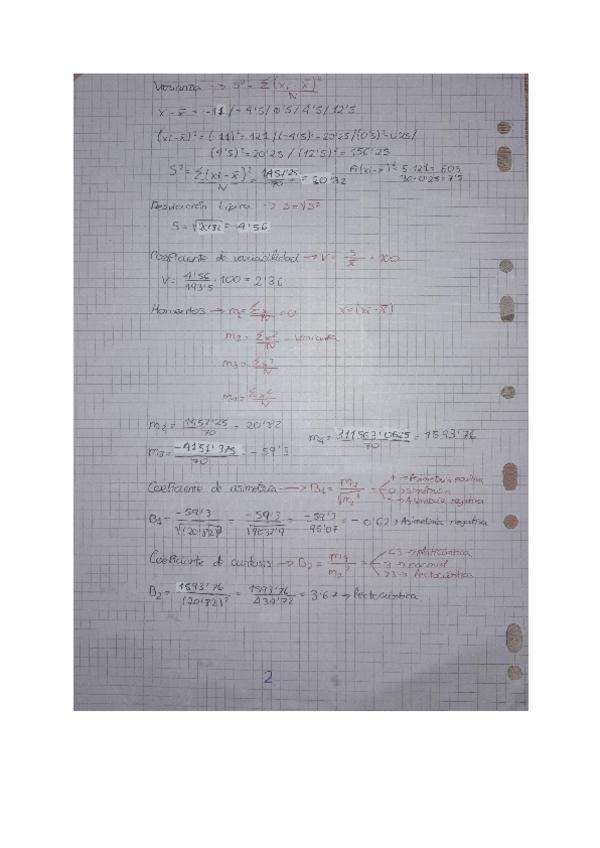 Varianza → S² = Σ(xi - x̄)² / N
x - x̄ = -11 / -4'5 / 0'5 / 4'5 / 12'5
(xi - x̄)² = (-11)² = 121 / (-4'5)² = 20'25 / (0'5)² = 0'25 /
(4'5)² = 20'25 / (12'5)² = 156'25
S² = Σ(xi - x̄)² / N = 1457'25 / 70 = 20'82
5·121 = 605
30·0'25 = 7'5
Desviación típica → S = √S²
S = √20'82 = 4'56
Coeficiente de variabilidad → V = S / x̄ · 100
V = 4'56 / 193'5 · 100 = 2'36
Momentos → = Σx / N = 0 x = (xi - x̄)
m2 = Σx² / N = Varianza
m3 = Σx³ / N
m4 = Σx⁴ / N
m2 = 1457'25 / 70 = 20'82
m4 = 111563'0625 / 70 = 1593'76
m3 = -4151'375 / 70 = -59'3
Coeficiente de asimetría → B1 = m3 / √m2³ = + → Asimetría positiva
0 → simétrica
- → Asimetría negativa
B1 = -59'3 / √(20'82)³ = -59'3 / = -59'3 / 95'07 = -0'62 → Asimetría negativa
Coeficiente de curtosis → B2 = m4 / m2² = <3 → platicúrtica
3 → normal
>3 → leptocúrtica
B2 = 1593'76 / (20'82)² = 1593'76 / 434'72 = 3'67 → leptocúrtica
2